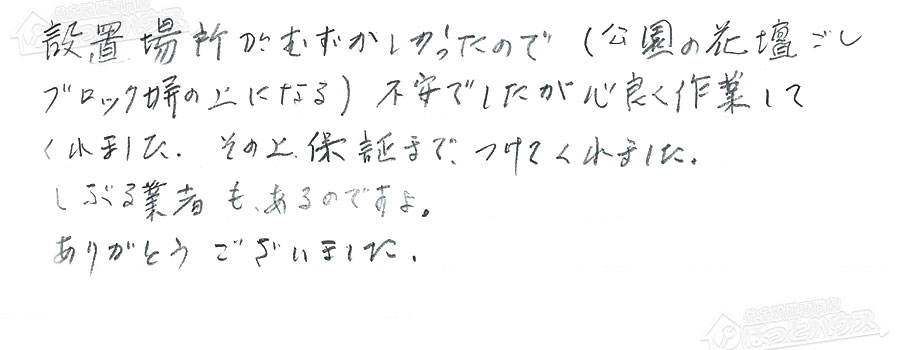 設置場所がむずかしかったので (公園の花壇ごし
ブロック塀の上になる) 不安でしたが心良く作業して
くれました. その上、保証まで、つけてくれました。
しぶる業者も、あるのですよ。
ありがとうございました.
ほっとハウス